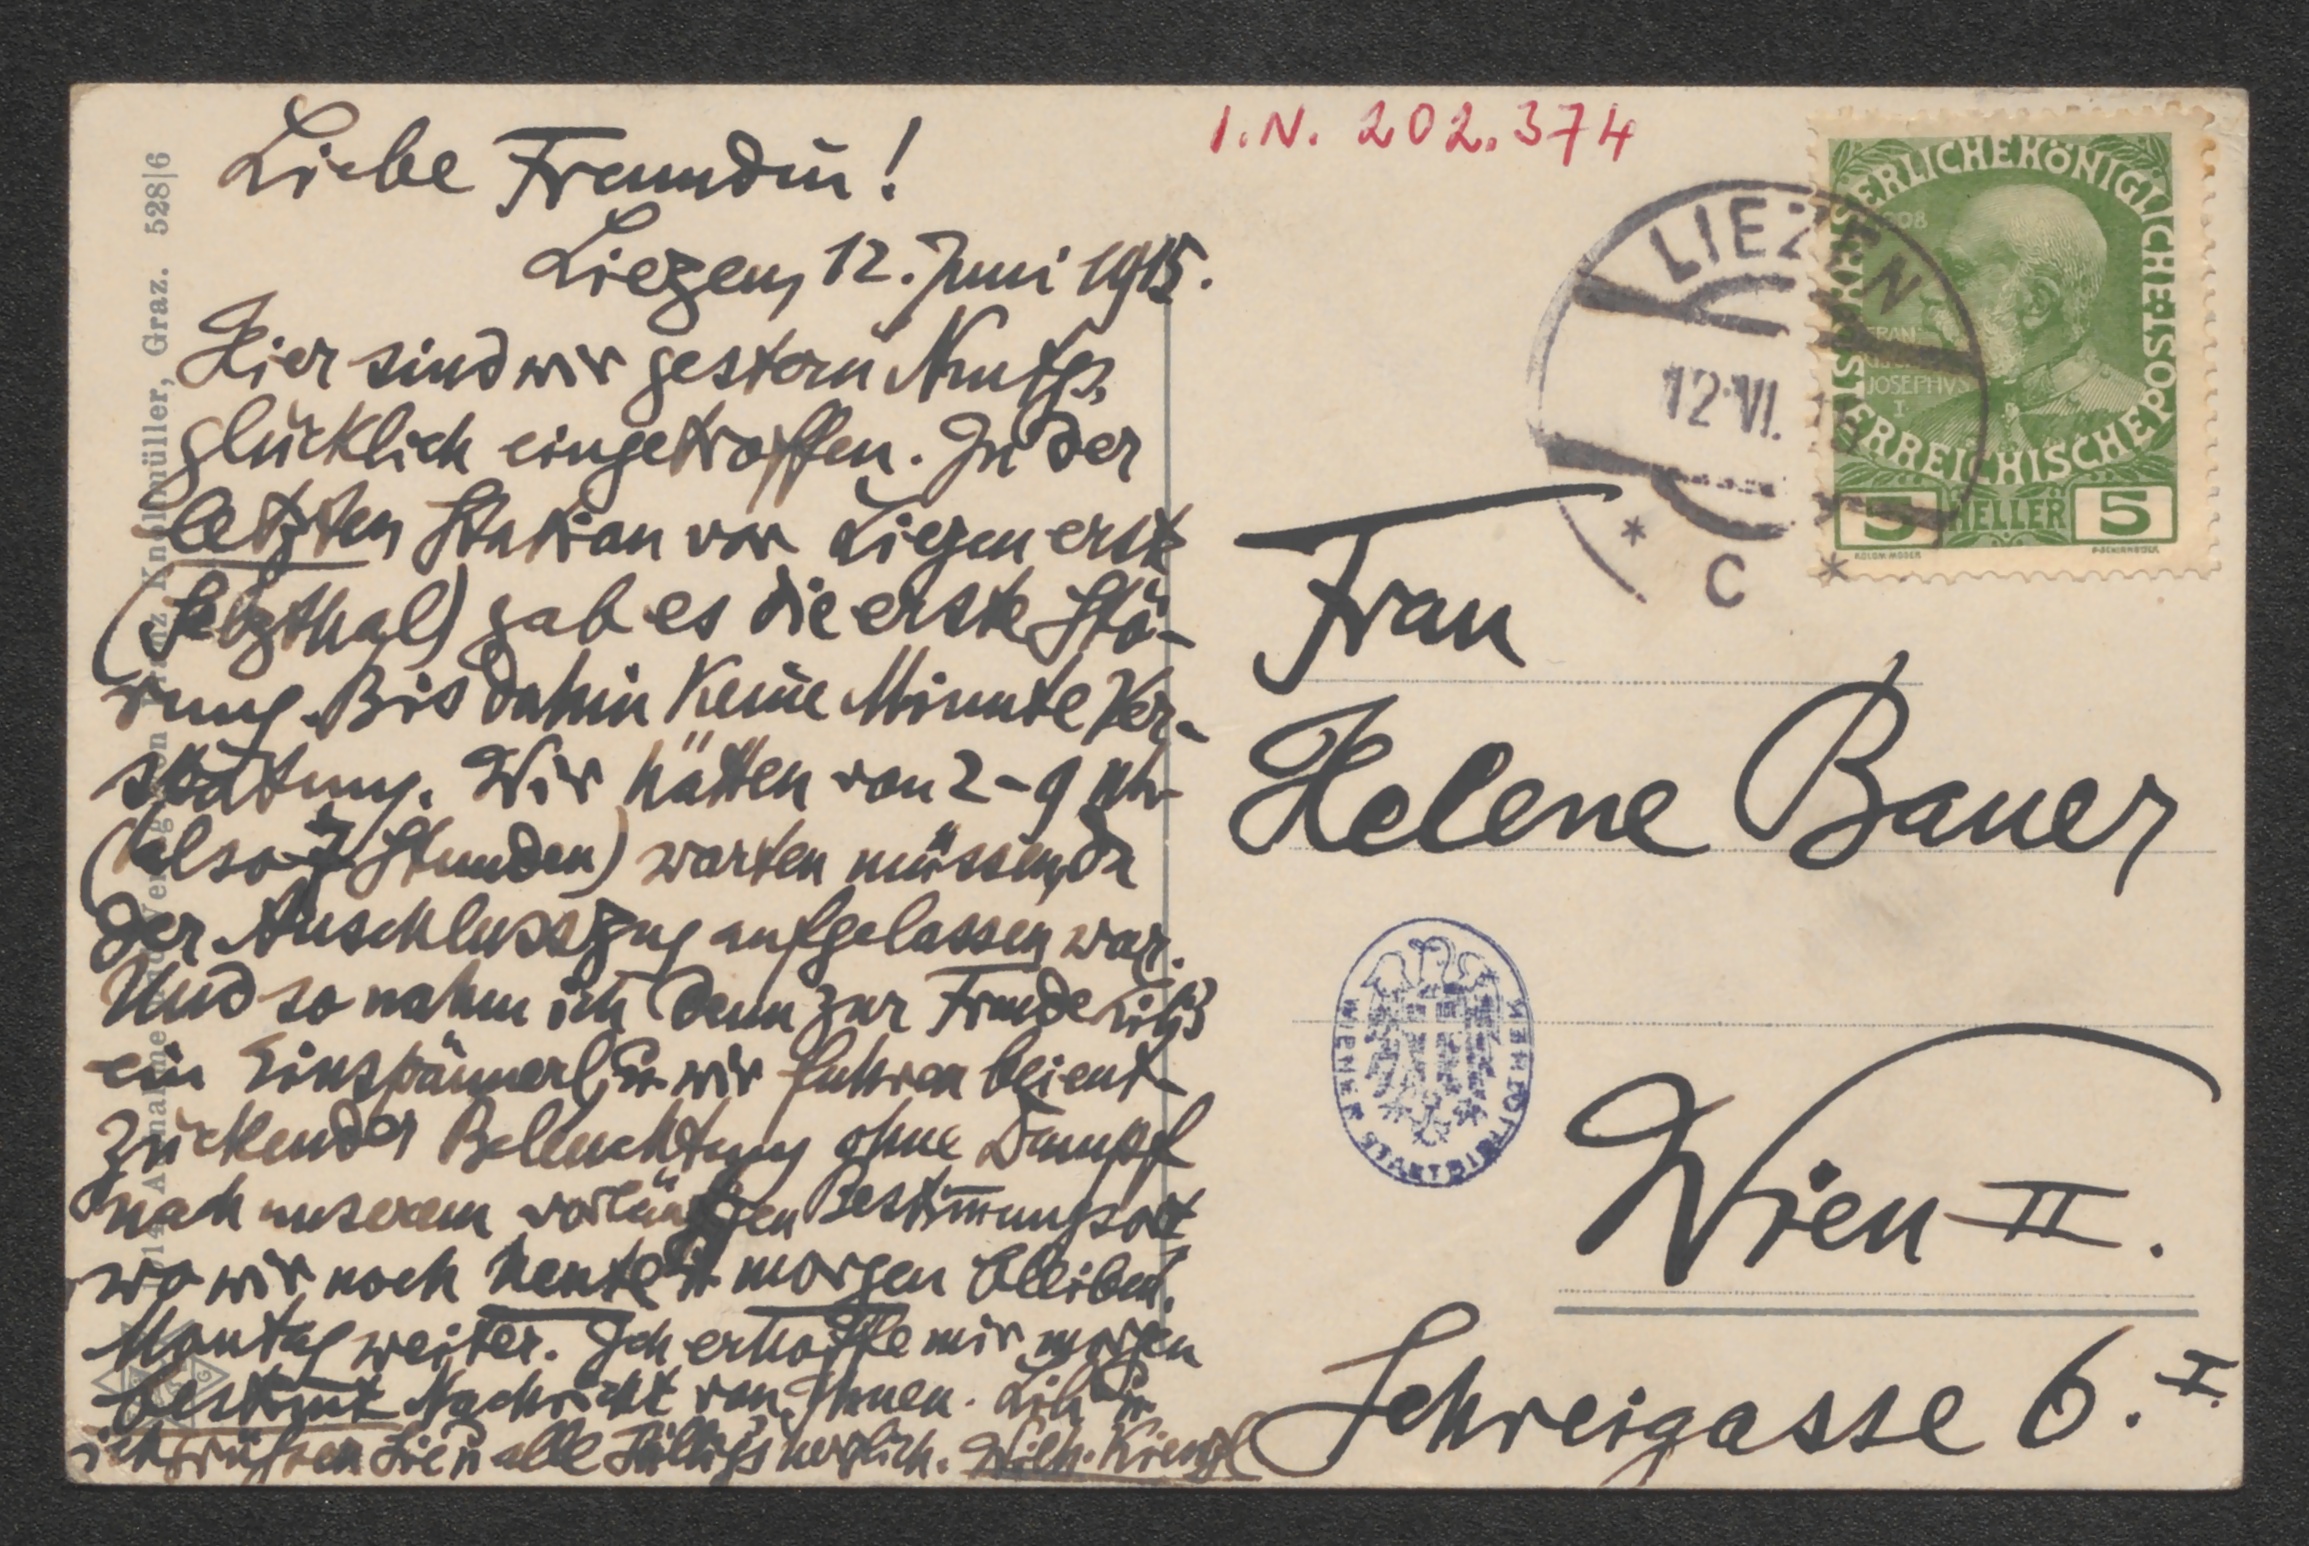 Liebe Freundin!
Liezen, 12. Juni 1915.
Hier sind wir gestern
glücklich eingetroffen. In der
letzten Station vor Liezen erst
(Selzthal) gab es die erste Stö-
rung. Bis dahin keine Minute Ver-
spätung. Wir hätten von 2-9 Uhr
(also 7 Stunden) warten müssen, da
der Anschlusszug aufgelassen war.
Und so nahm ich denn zur Freude Lili's
ein Einspännerl, u. wir fuhren bei ent-
zückender Beleuchtung ohne Dampf
nach unserem vorläufigen Bestimmungsort
wo wir noch heute u. morgen bleiben.
Montag weiter. Ich erhoffe mir morgen
bestimmt Nachricht von Ihnen. Lili u.
ich grüßen Sie u. alle herzlich. Wilh. Kienzl
I.N. 202.374
LIEZEN
12.VI.
* C *
KAISERLICHE KÖNIGLICHE ÖSTERREICHISCHE POST
1908
FRAN
JOSEPHVS
I
5 HELLER 5
KOLOM. MOSER
F. SCHIRNBÖCK
Frau
Helene Bauer
Wien II.
Schreigasse 6. I.
WIENER STADTBIBLIOTHEK
1914 Aufnahme und Verlag von Franz Knollmüller, Graz. 528|6